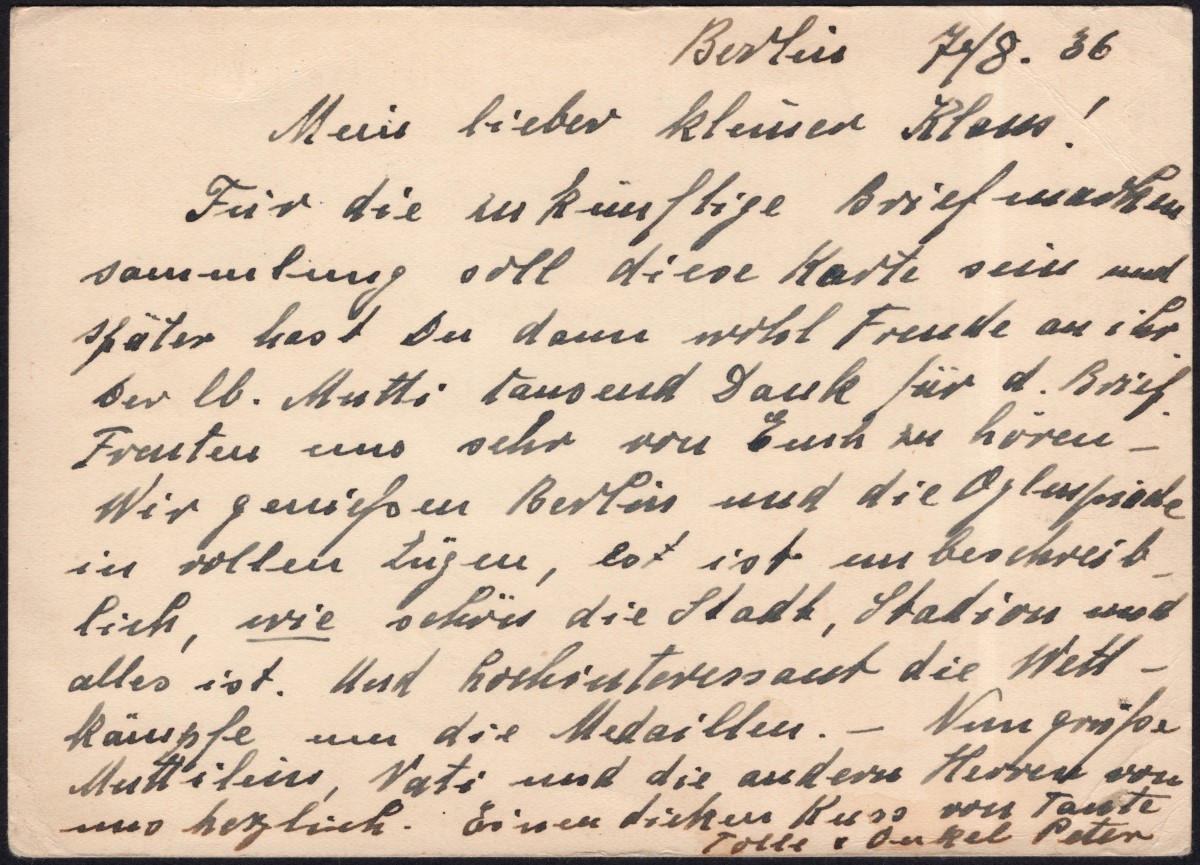 Berlin 7./8. 36
Mein lieber kleiner Klaus!
Für die zukünftige Briefmarken
sammlung soll diese Karte sein und
später hast Du dann wohl Freude an ihr.
Der lb. Mutti tausend Dank für d. Brief.
Freuten uns sehr von Euch zu hören –
Wir genießen Berlin und die Olympiade
in vollen Zügen, es ist unbeschreib-
lich, wie schön die Stadt, Stadion und
alles ist. Und hochinteressant die Wett-
kämpfe um die Medaillen. – Nun grüße
Muttilein, Vati und die andern Herren von
uns herzlich. Einen dicken Kuss von Tante
Onkel Peter